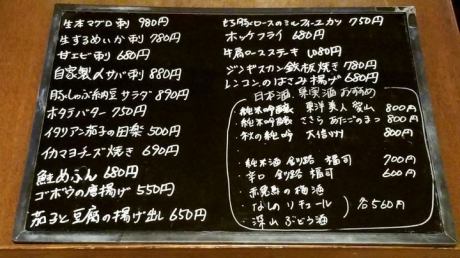 生本マグロ刺 980円
生するめいか刺 780円
甘エビ刺 680円
自家製〆サバ刺 880円
豚しゃぶ納豆サラダ 890円
ホタテバター 750円
イタリアン茄子の田楽 500円
イカマヨチーズ焼き 690円
鮭めふん 680円
ゴボウの唐揚げ 550円
茄子と豆腐の揚げ出し 650円
豚ロースのミルフィーユカツ 750円
ホッケフライ 680円
牛肩ロースステーキ 1,080円
ジンギスカン鉄板焼き 780円
レンコンのはさみ揚げ 680円
日本酒 果実酒 おすすめ
・純米吟醸 東洋美人 800円
・純米吟醸 さらら あたごのまつ 800円
・秋の純吟 大信州 800円
・純米酒 釧路 福司 700円
・辛口 釧路 福司 600円
・の梅酒
・なしのリキュール 各560円
・深山ぶどう酒